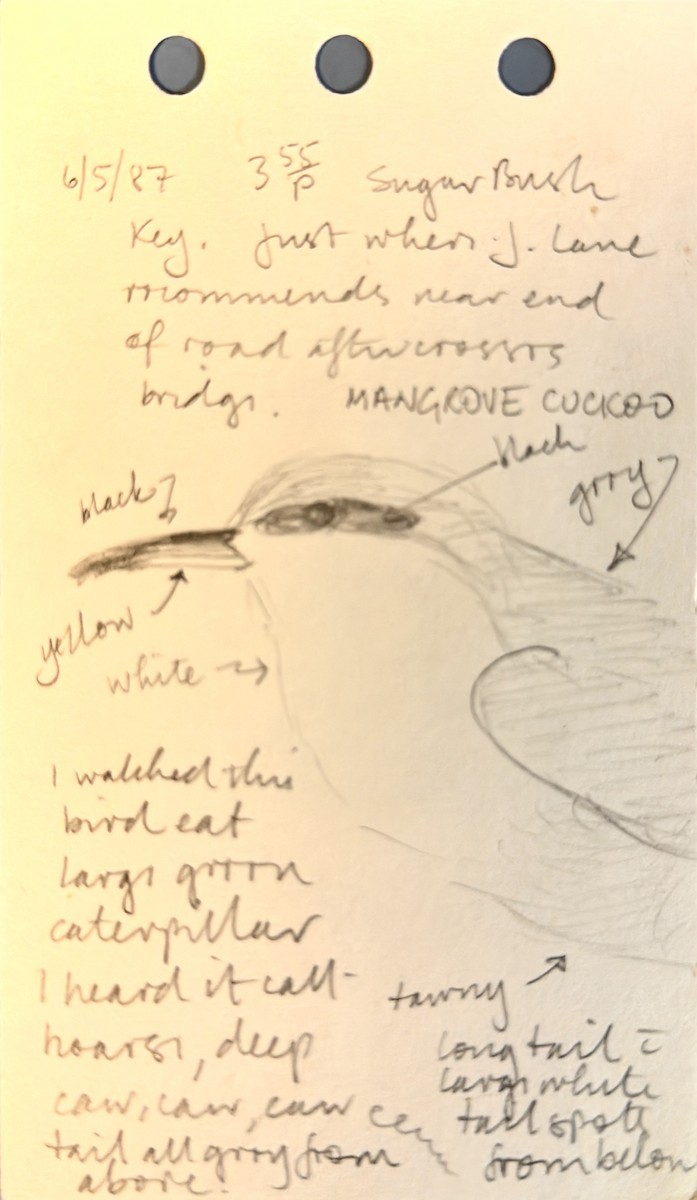 6/5/87 3 55 p Sugar Bush
Key. Just where J. Lane
recommends near end
of road after crossing
bridge. MANGROVE CUCKOO
black
grey
black
yellow
white →
I watched this
bird eat
large green
caterpillar
I heard it call-
hoarse, deep
caw, caw, caw
tail all grey from
above.
tawny
long tail c̄
large white
tail spots
from below